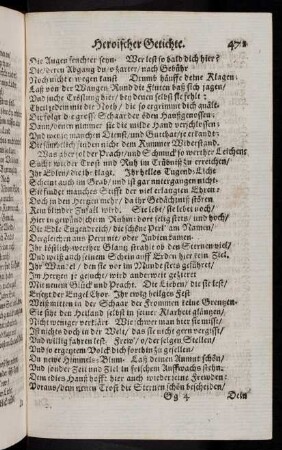 Heroischer Getichte. 471
Die Augen feuchter seyn. Wer lest so bald dich hier?
Die/deren Abgang du/o harter/nach Gebühr
Noch nicht erwegen kanst Drumb häuffe deine Klagen;
Laß von der Wangen Rund die Fluten baß sich jagen/
Und suche Tröstung hier/bey denen selbst sie fehlt:
Theil jedem mit die Noth/ die so ergrimmt dich quält.
Dir folgt die grosse Schaar der öden Haußgenossen:
Wann/dorein nimmer sie die milde Hand verschlossen:
Und wenig manchen Dienst/und Gutthat/je erlandt:
Die sämbtlich finden nicht dem Kummer Widerstand.
Was aber sol der Pracht/und Schmuck so werther Leichen:
Sucht wieder Trost und Ruh im Trübniß zu erreichen/
Ihr Edlen/die ihr klagt. Ihr helles Tugend-Liche
Scheint auch im Grab/und ist gar untergangen nicht.
Sie sandte manches Stifft der viel erlangten Ehren:
Doch in den Hertzen mehr/da ihr Gedächtniß stören
Kein blinder Zufall wird. Sie lebt/sie lebet noch/
Hier in gewündschtem Ruhm: dort selig stets/und hoch/
Die Edle Tugendreich/die schöne Perl' am Namen/
Dergleichen aus Peru nie/oder Indien kamen.
Ihr köstlich-werther Glantz strahlt ob den Sternen viel/
Und weist auch seinem Schein auff Erden hier kein Ziel.
Ihr Wandel/ den sie vor im Munde stets geführet/
Im Hertzen je geheget/ wird anderweit gezieret
Mit neuem Glück und Pracht. Die Lieben/die sie lest/
Ersetzt der Engel Chor. Ihr ewig heilges Fest
Weiß mitten in der Schaar der Frommen keine Grentzen.
Sie siht den Heiland selbst in seiner Klarheit gläntzen/
Nicht weniger verklärt. Wie schwer man hier sie misst/
Ist nichts doch in der Welt/das sie nicht gern vergisst/
Und willig fahren lest. Frew'/o der selgen Stellen/
Und so ergetztem Volck dich forthin zu gesellen/
Du newe Himmels-Blum. Laß deinen Anmut schön/
Und sonder Zeit und Ziel in frischem Auffwachs stehn.
Dem edles Haupt hofft hier auch wieder seine Frewden:
Voraus/dem neuen Trost die Sternen schön bescheiden/
Gg 4 Dein